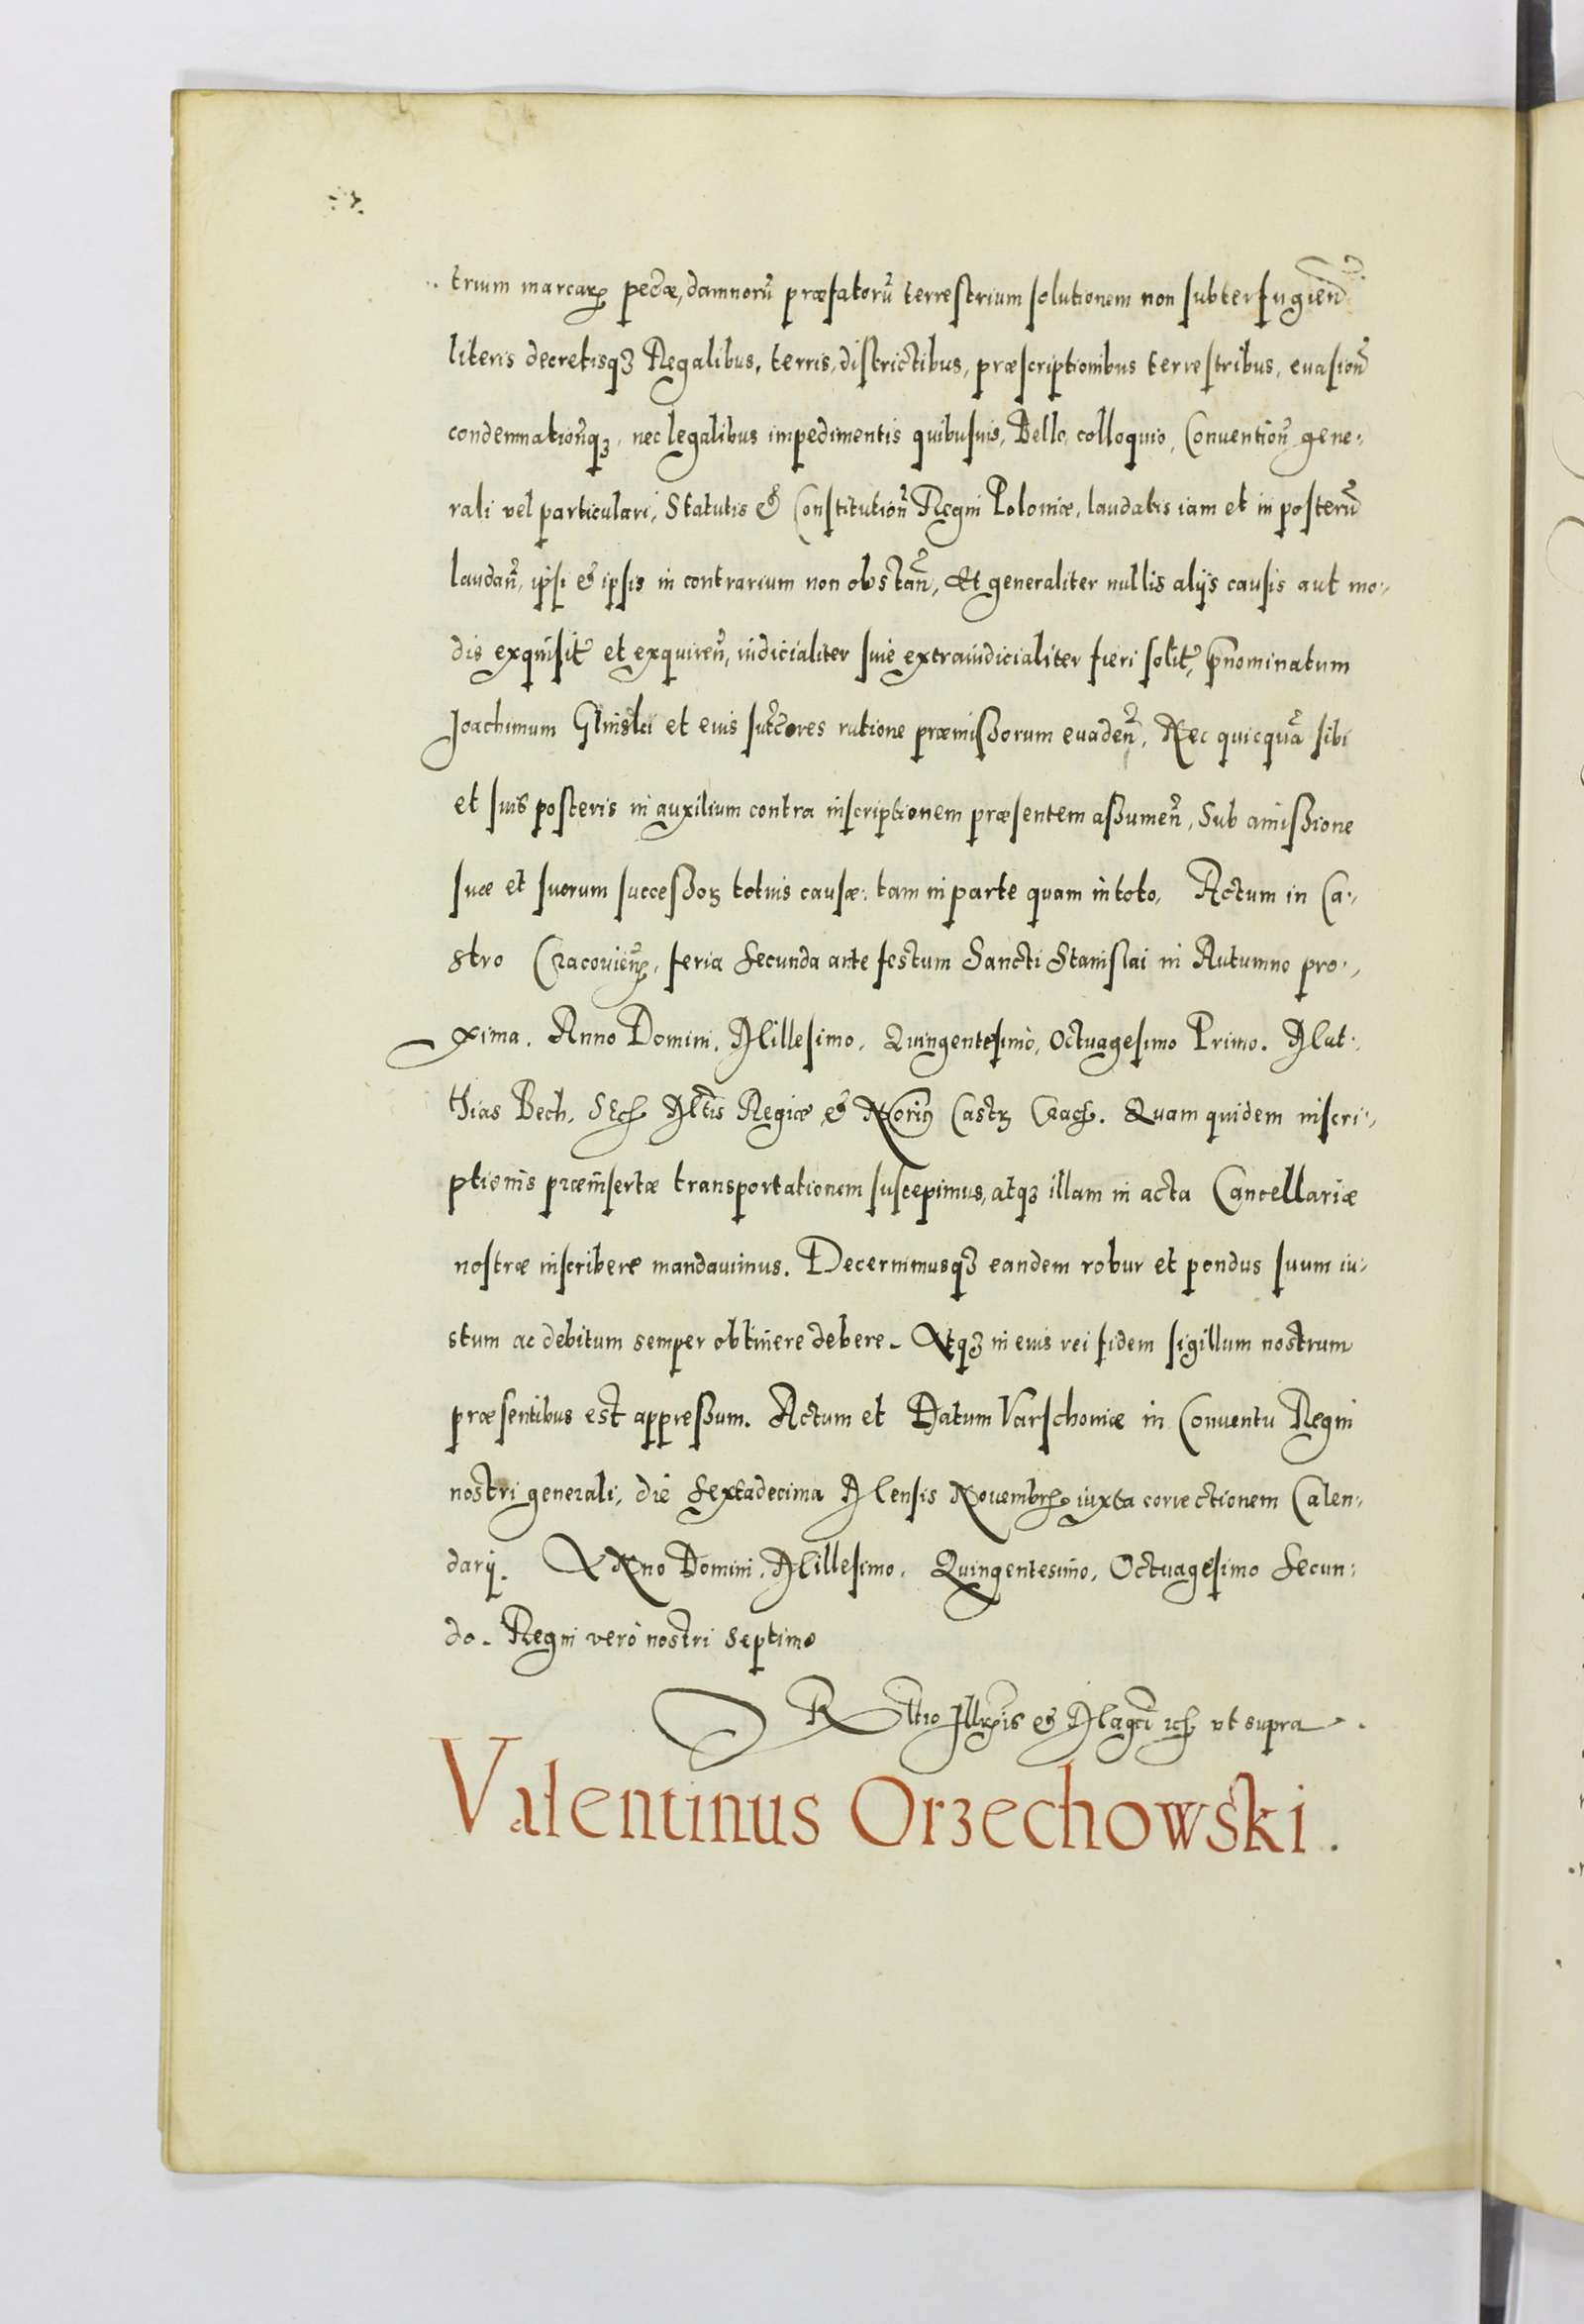 trium marcaꝝ pecuæ, damnorũ præfatorũ terrestrium solutionem non subterfugieñ
literis decretisqꝫ Regalibus, terris, districtibus, præscriptionibus terrestribus, euasioñ
condemnationqꝫ, nec legalibus impedimentis quibusuis, Bello, colloquio, Conuentioñ gene-
rali vel particulari, Statutis & Constitutioñ Regni Poloniæ, laudatis iam et in posterũ
laudañ, ipsi & ipsis in contrarium non obstañ, Et generaliter nullis alijs causis aut mo-
dis exquisit̃ et exquireñ, iudicialiter siue extraiudicialiter fieri solit̃, p̃nominatum
Joachimum Glinski et eius suc̃cores ratione præmissorum euadeñ, Nec quicquã sibi
et suis posteris in auxilium contra inscriptionem præsentem assumeñ, Sub amissione
suæ et suorum successoꝝ totius causæ: tam in parte quam in toto, Actum in Ca-
stro Cracovieñ, feria Secunda ante festum Sancti Stanislai in Autumno pro-
xima. Anno Domini. Millesimo, Quingentesimo, Octuagesimo Primo. Mat-
thias Bech, Mt̃is Regiæ & Castꝝ Crac. Quam quidem inscri-
ptionis præinsertæ transportationem suscepimus, atqꝫ illam in acta Cancellariæ
nostræ inscribere mandauimus. Decernimusqꝫ eandem robur et pondus suum iu-
stum ac debitum semper obtinere debere. Atqꝫ in eius rei fidem sigillum nostrum
præsentibus est appressum. Actum et Datum Varschoviæ in Conuentu Regni
nostri generali, die Sextadecima Mensis Nouembr̃ iuxta correctionem Calen-
darij. Anno Domini. Millesimo, Quingentesimo, Octuagesimo Secun-
do. Regni vero nostri Septimo
Rl̃tio Illr̃is & Mag̃ci ꝛc̃ vt supra.
Valentinus Orzechowski.